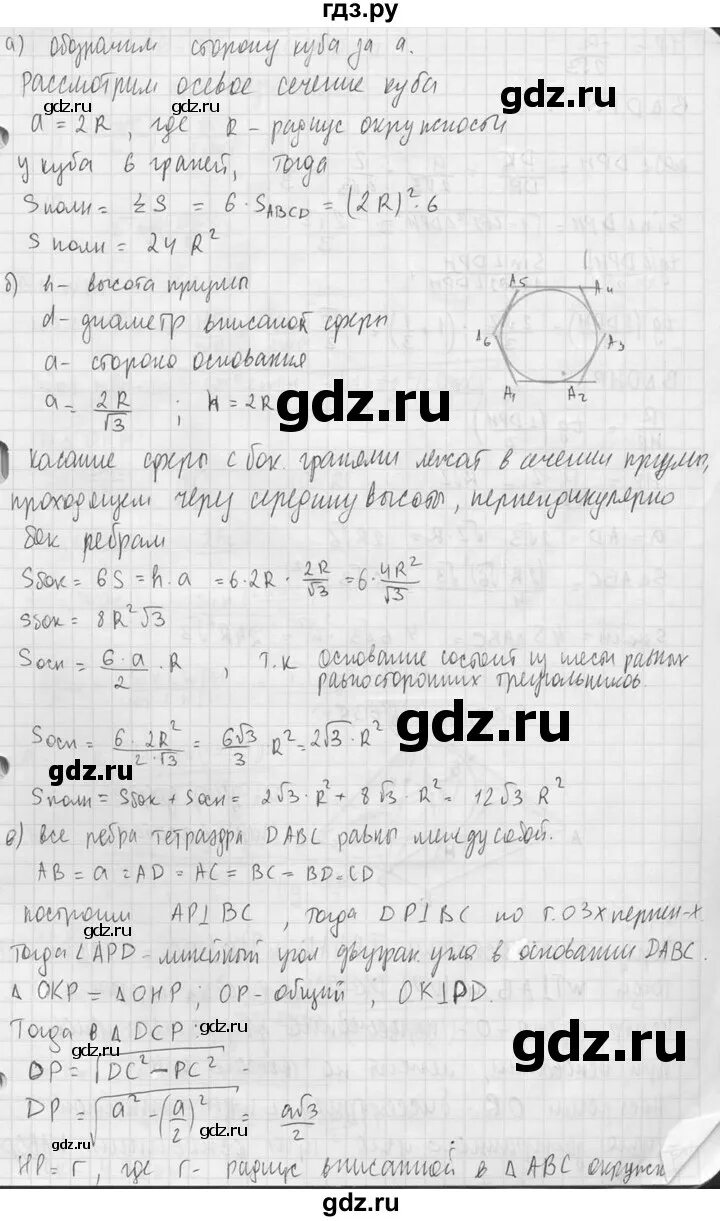 гдз.ру
а) обозначим сторону куба за а.
Рассмотрим осевое сечение куба
gdz.ru gdz.ru
a = 2R, где R - радиус окружности
у куба 6 граней, тогда
Sполн = ½ S = 6 · S_ABCD = (2R)² · 6
gdz.ru gdz.ru
S полн = 24 R²
б) h - высота призмы
d - диаметр вписаной сферы
а - сторона основания
A₅ A₄ A₆ A₃ A₁ A₂
a = 2R/√3 ; H = 2R
gdz.ru gdz.ru
касание сферы с бок. гранями лежат в сечении призмы,
проходящем через середину высоты, перпендикулярно
бок ребрам
gdz.ru gdz.ru
Sбок = 6S = h · a = 6 · 2R · 2R/√3 = 6 · 4R²/√3
Sбок = 8R²√3
gdz.ru
Sосн = 6·a/2 · R, т.к основание состоит из шести равных
равносторонних треугольников.
gdz.ru
Sосн = 6·2R²/2·√3 = 6√3/3 R² = 2√3 · R²
gdz.ru gdz.ru
Sполн = Sбок + Sосн = 2√3 · R² + 8√3 · R² = 12√3 R²
в) все ребра тетраэдра DABC равны между собой.
gdz.ru
AB = a = AD = AC = BC = BD = CD
построим AP⊥BC, тогда DP⊥BC по т. о 3х перпен-х
gdz.ru gdz.ru
Тогда ∠APD - линейный угол двугран. угла в основании DABC.
△OKP = △OHP; OP - общий, OK⊥PD.
Тогда в △DCP:
gdz.ru gdz.ru
DP = √DC² − PC² =
gdz.ru
DP = √a² − (a/2)² = a√3/2
gdz.ru gdz.ru
HP = r, где r - радиус вписанной в △ABC окружн.
gdz.ru